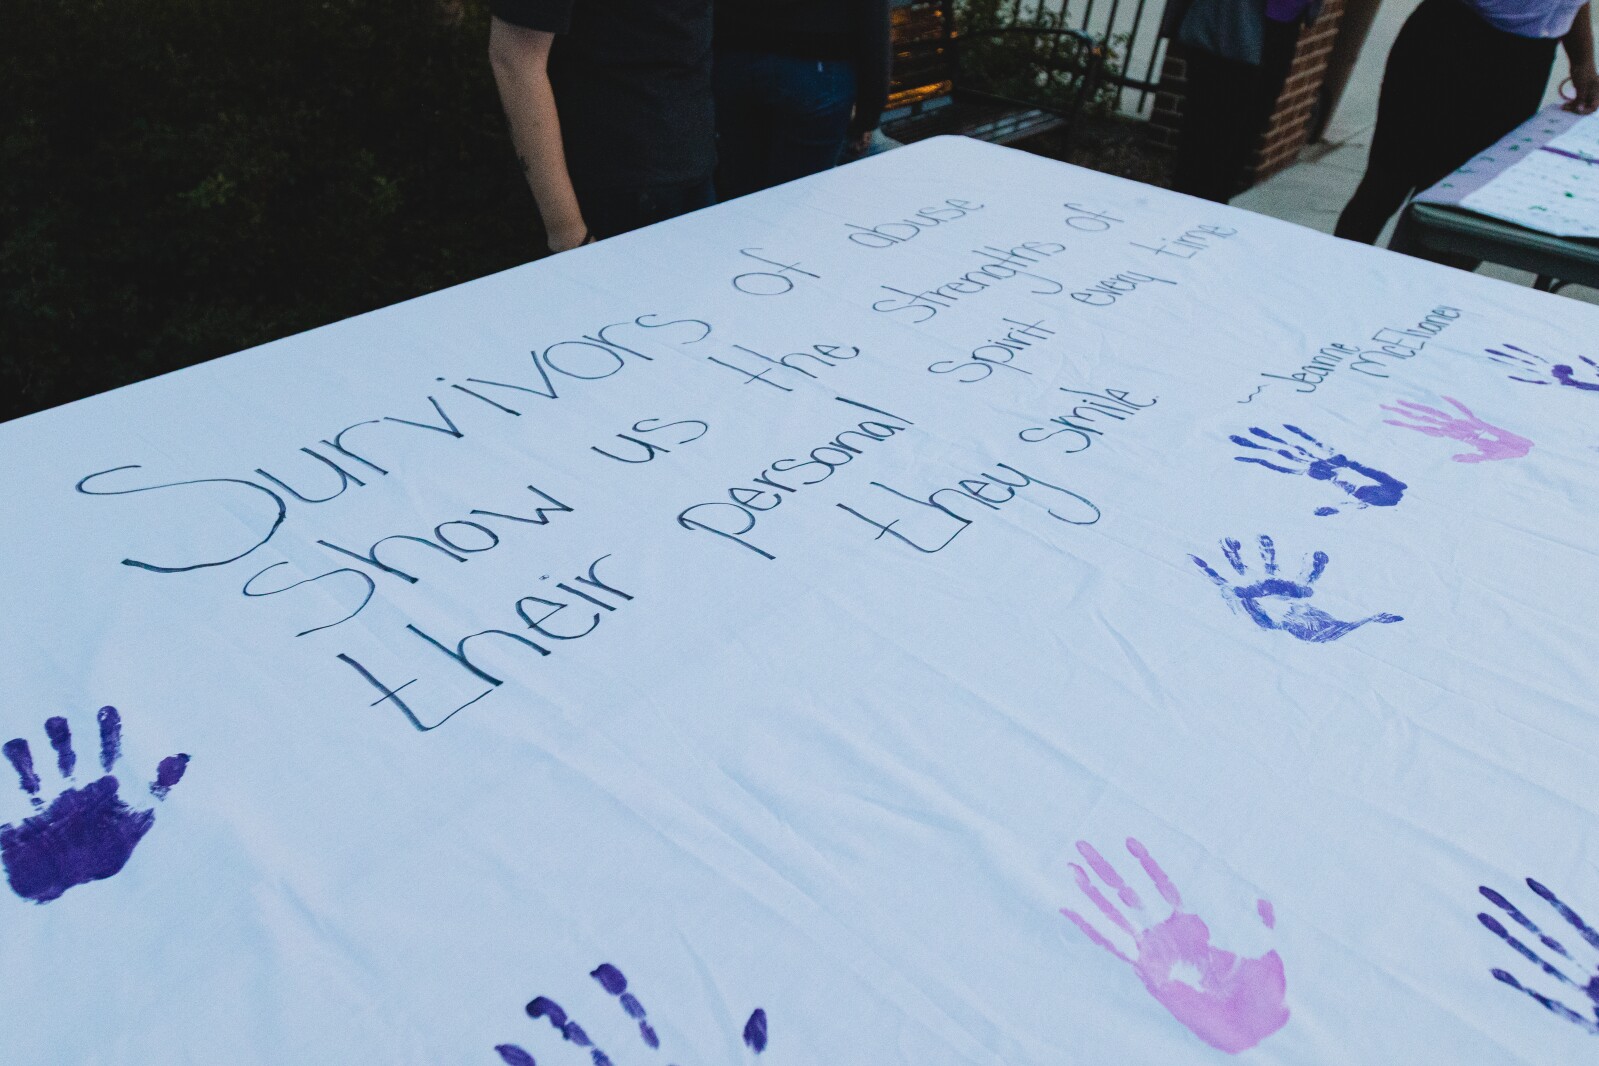 Survivors of abuse
show us the strengths of
their personal spirit every time
they smile.
~ Jeanne
McElvaney